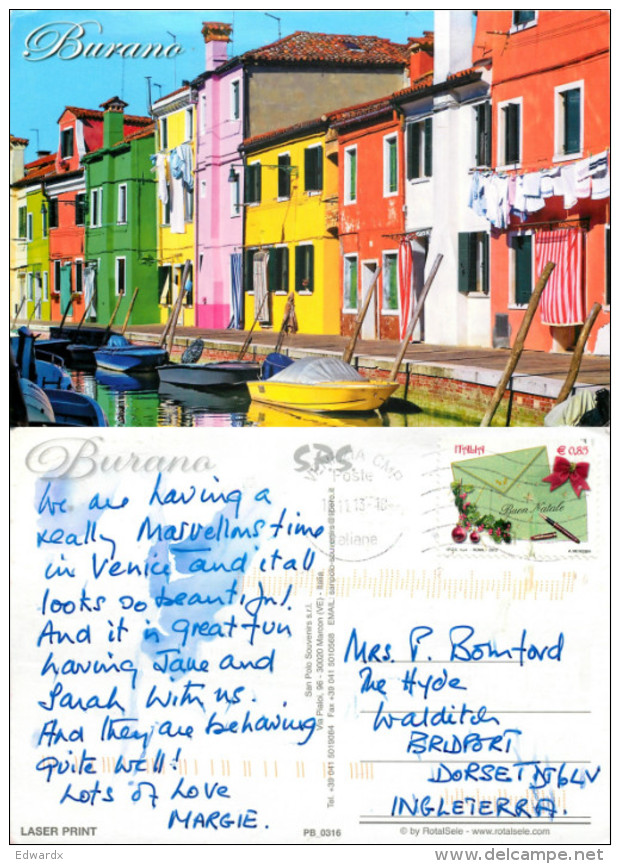 Burano
Burano
SPS
ITALIA
€ 0,85
Buon Natale
We are having a
really Marvellous time
in Venice and it all
looks so beautiful!
And it is great fun
having Jane and
Sarah with us.
And they are behaving
quite well!
Lots of Love
MARGIE.
San Polo Souvenirs s.r.l.
Via Pialoi, 96 - 30020 Marcon (VE) - Italia.
Fax +39 041 5019084 Tel. +39 041 5010568 EMAIL: sanpolo-souvenirs@libero.it
Mrs. P. Bomford
The Hyde
Walditch
BRIDPORT
DORSET DT6 4LV
INGLETERRA.
LASER PRINT
PB_0316
© by RotalSele - www.rotalsele.com
Edwardx
delcampe.net